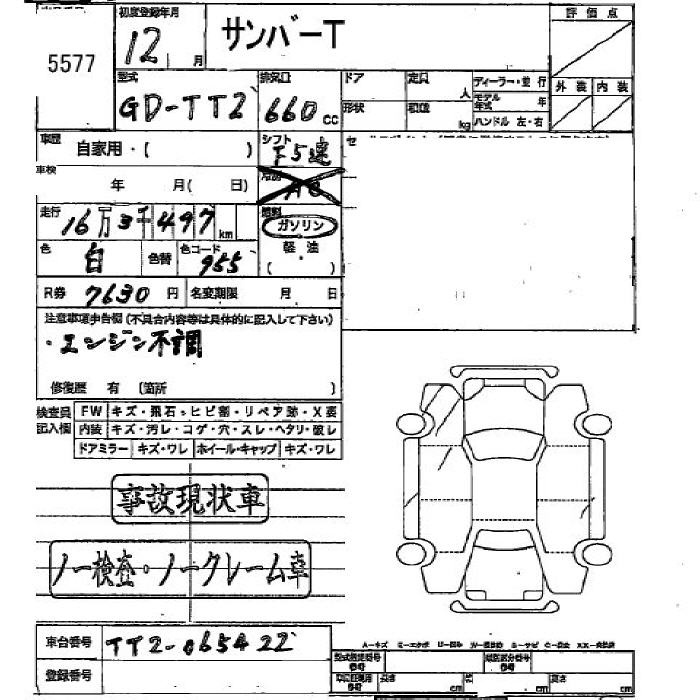 5577
初度登録年月
12 月
サンバーT
評価点
型式
GD-TT2
排気量
660 cc
ドア
形状
定員 人
積載 kg
ディーラー・並行
モデル年式 年
ハンドル 左・右
外装 内装
車歴 自家用・( )
シフト F5速
車検 年 月( 日)
冷房 AC
走行 16万3千497km
燃料 ガソリン
軽油
( )
色 白 色替 色コード 955
R券 7630円 名変期限 月 日
注意事項申告欄(不具合内容等は具体的に記入して下さい)
・エンジン不調
修復歴 有 (箇所 )
検査員記入欄
FW キズ・飛石・ヒビ割・リペア跡・X要
内装 キズ・汚レ・コゲ・穴・スレ・ヘタリ・破レ
ドアミラー キズ・ワレ ホイール・キャップ キズ・ワレ
事故現状車
ノー検査・ノークレーム車
車台番号 TT2-065422
登録番号
型式指定番号
類別区分番号
長さ cm
幅 cm
高さ cm